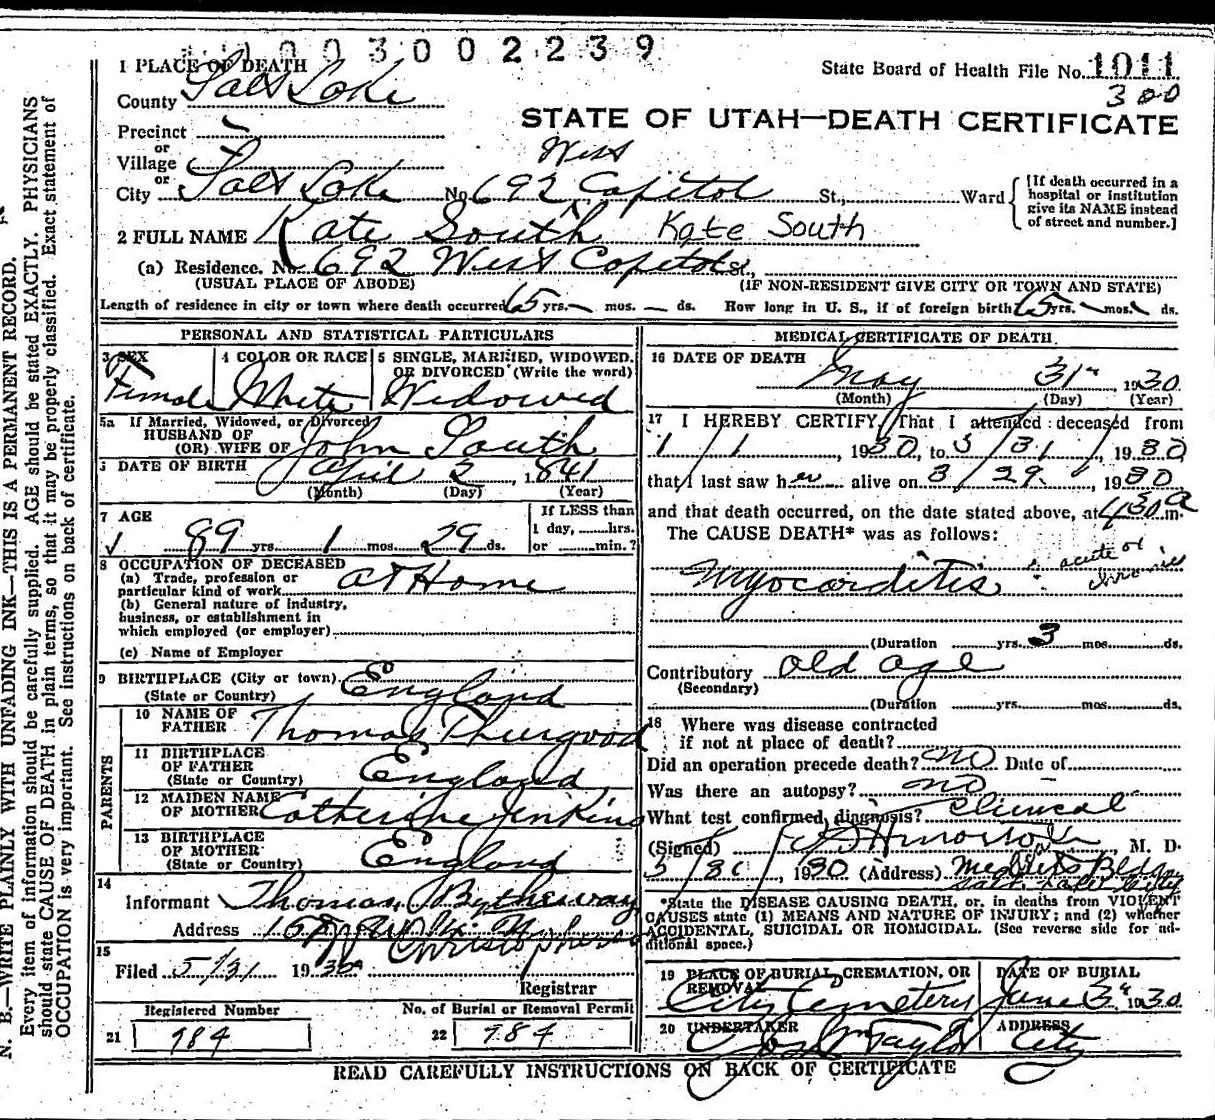 003002239
1 PLACE OF DEATH
State Board of Health File No. 1011
County Salt Lake
300
STATE OF UTAH—DEATH CERTIFICATE
Precinct
or
Village
West
or
City Salt Lake No. 692 Capitol St., Ward
[If death occurred in a
hospital or institution
give its NAME instead
of street and number.]
2 FULL NAME Kate South Kate South
(a) Residence. No. 692 West Capitol St.,
(USUAL PLACE OF ABODE) (IF NON-RESIDENT GIVE CITY OR TOWN AND STATE)
Length of residence in city or town where death occurred 65 yrs. — mos. — ds. How long in U. S., if of foreign birth 65 yrs. — mos. ds.
PERSONAL AND STATISTICAL PARTICULARS
3 SEX
Female
4 COLOR OR RACE
White
5 SINGLE, MARRIED, WIDOWED.
OR DIVORCED (Write the word)
Widowed
5a If Married, Widowed, or Divorced
HUSBAND OF
(OR) WIFE OF John South
6 DATE OF BIRTH April 2, 1841
(Month) (Day) (Year)
7 AGE
89 yrs. 1 mos. 29 ds.
If LESS than
1 day, ......hrs.
or ......min.?
8 OCCUPATION OF DECEASED
(a) Trade, profession or
particular kind of work At Home
(b) General nature of industry,
business, or establishment in
which employed (or employer)
(c) Name of Employer
9 BIRTHPLACE (City or town)
(State or Country) England
PARENTS
10 NAME OF
FATHER Thomas Thurgood
11 BIRTHPLACE
OF FATHER
(State or Country) England
12 MAIDEN NAME
OF MOTHER Catherine Jenkins
13 BIRTHPLACE
OF MOTHER
(State or Country) England
14
Informant Thomas Bytheway
Address
15
Filed 5/31 1930
Registrar
Registered Number
21 984
No. of Burial or Removal Permit
22 984
MEDICAL CERTIFICATE OF DEATH
16 DATE OF DEATH
May 31st 1930
(Month) (Day) (Year)
17 I HEREBY CERTIFY, That I attended deceased from
1/1, 1930, to 5/31/, 1930
that I last saw her alive on 3/29, 1930
and that death occurred, on the date stated above, at 4 30 a m.
The CAUSE DEATH* was as follows:
Myocarditis acute or
chronic
(Duration yrs. 3 mos. ds.
Contributory old age
(Secondary)
(Duration yrs. mos. ds.
18 Where was disease contracted
if not at place of death?
Did an operation precede death? no Date of
Was there an autopsy? no
What test confirmed diagnosis? Clinical
(Signed) M. D.
5/31, 1930 (Address) Bldg
Salt Lake City
*State the DISEASE CAUSING DEATH, or, in deaths from VIOLENT
CAUSES state (1) MEANS AND NATURE OF INJURY; and (2) whether
ACCIDENTAL, SUICIDAL OR HOMICIDAL. (See reverse side for ad-
ditional space.)
19 PLACE OF BURIAL, CREMATION, OR
REMOVAL
City Cemetery
DATE OF BURIAL
June 3rd 1930
20 UNDERTAKER
Taylor
ADDRESS
City
READ CAREFULLY INSTRUCTIONS ON BACK OF CERTIFICATE
N. B.—WRITE PLAINLY WITH UNFADING INK—THIS IS A PERMANENT RECORD.
Every item of information should be carefully supplied. AGE should be stated EXACTLY. PHYSICIANS
should state CAUSE OF DEATH in plain terms, so that it may be properly classified. Exact statement of
OCCUPATION is very important. See instructions on back of certificate.